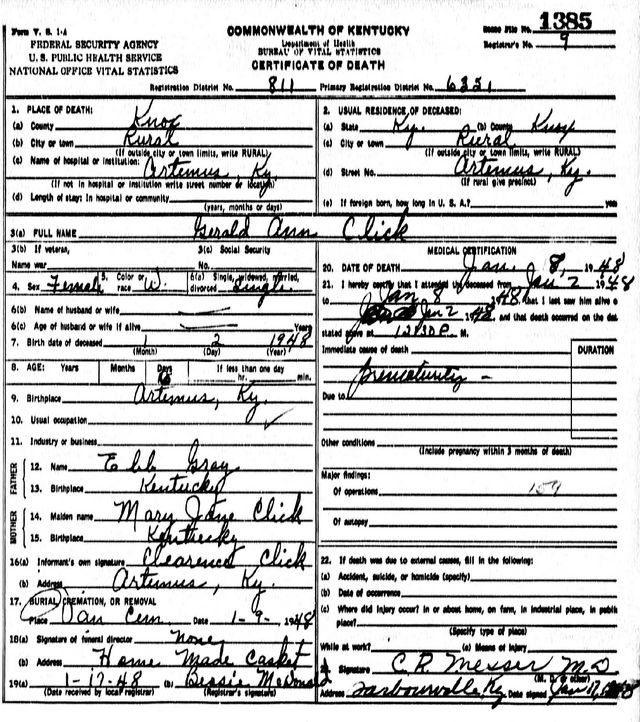 Form V. S. 1-A
FEDERAL SECURITY AGENCY
U. S. PUBLIC HEALTH SERVICE
NATIONAL OFFICE VITAL STATISTICS
COMMONWEALTH OF KENTUCKY
Department of Health
BUREAU OF VITAL STATISTICS
CERTIFICATE OF DEATH
File No. 1385
Registrar's No. 9
Registration District No. 811 Primary Registration District No. 6351
1. PLACE OF DEATH:
(a) County Knox
(b) City or town Rural
(If outside city or town limits, write RURAL)
(c) Name of hospital or institution: Artemus, Ky.
(If not in hospital or institution write street number or location)
(d) Length of stay: In hospital or community
(years, months or days)
2. USUAL RESIDENCE OF DECEASED:
(a) State Ky. (b) County Knox
(c) City or town Rural
(If outside city or town limits, write RURAL)
(d) Street No. Artemus, Ky.
(If rural give precinct)
(e) If foreign born, how long in U. S. A.?
3(a) FULL NAME Gerald Ann Click
3(b) If veteran,
Name war
3(c) Social Security
No.
4. Sex Female 5. Color or race W. 6(a) Single, widowed, married, divorced Single
6(b) Name of husband or wife
6(c) Age of husband or wife if alive Years
7. Birth date of deceased 1 2 1948
(Month) (Day) (Year)
8. AGE: Years Months Days 6 If less than one day
hr. min.
9. Birthplace Artemus, Ky.
10. Usual occupation ✓
11. Industry or business
FATHER
12. Name Ebb Gray
13. Birthplace Kentucky
MOTHER
14. Maiden name Mary Jane Click
15. Birthplace Kentucky
16(a) Informant's own signature Clearence Click
(b) Address Artemus, Ky.
17. BURIAL, CREMATION, OR REMOVAL
Place Cem Date 1-9-1948
18(a) Signature of funeral director none
(b) Address Home Made Casket
19(a) 1-17-48 (b) Bessie McDonald
(Date received by local registrar) (Registrar's signature)
MEDICAL CERTIFICATION
20. DATE OF DEATH Jan. 8, 1948
21. I hereby certify that I attended the deceased from Jan 2 1948
to Jan 8 1948 that I last saw him alive o
Jan 2 1948, and that death occurred on the dat
stated above at 12:30 P. M.
Immediate cause of death DURATION
prematurity -
Due to
Other conditions
(Include pregnancy within 3 months of death)
Major findings:
Of operations 159
Of autopsy
22. If death was due to external causes, fill in the following:
(a) Accident, suicide, or homicide (specify)
(b) Date of occurrence
(c) Where did injury occur? in or about home, on farm, in industrial place, in public
place?
(Specify type of place)
While at work? (e) Means of injury
Signature C. R. Messer M.D
(M. D. or other)
Address Barbourville Ky Date signed Jan 17, 1948